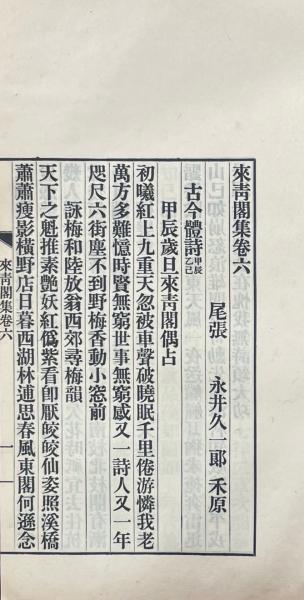 來青閣集卷六
尾張 永井久一郎 禾原
古今體詩甲辰乙巳
甲辰歲旦來青閣偶占
初曦紅上九重天忽被車聲破曉眠千里倦游憐我老
萬方多難憶時賢無窮世事無窮感又一詩人又一年
咫尺六街塵不到野梅香動小窓前
詠梅和陸放翁西郊尋梅韻
天下之魁推素艷妖紅爲紫看卽厭皎皎仙姿照溪橋
蕭蕭瘦影橫野店日暮西湖林逋思春風東閣何遜念
來青閣集卷六
一